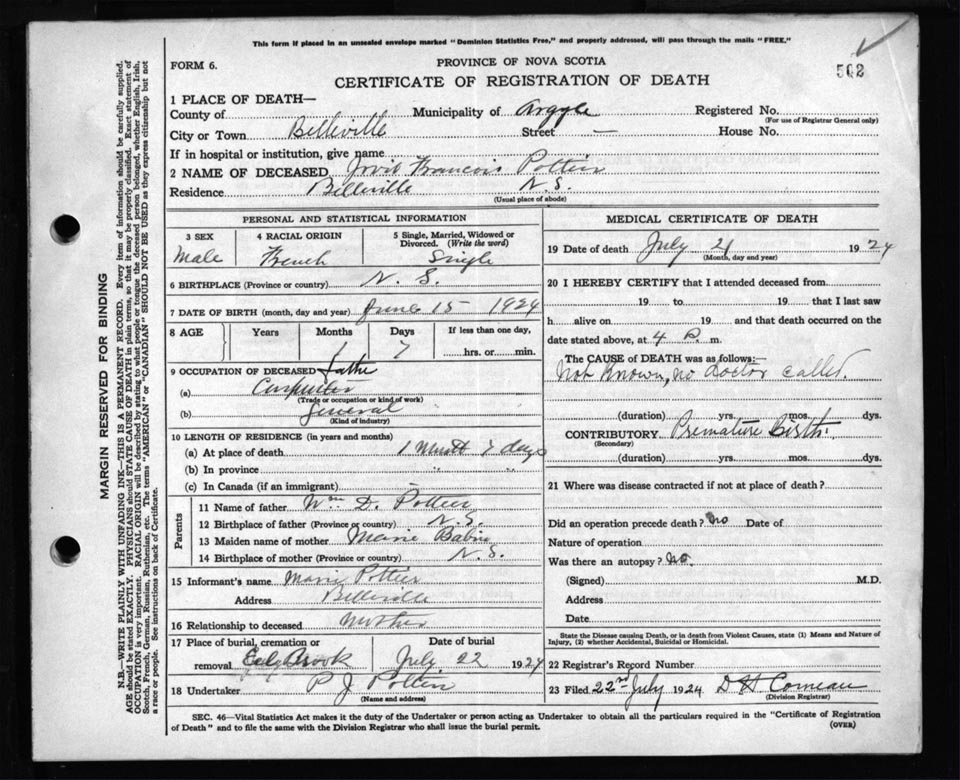 This form if placed in an unsealed envelope marked "Dominion Statistics Free," and properly addressed, will pass through the mails "FREE."
FORM 6.
PROVINCE OF NOVA SCOTIA
502
CERTIFICATE OF REGISTRATION OF DEATH
1 PLACE OF DEATH—
County of Municipality of Argyle Registered No.
(For use of Registrar General only)
City or Town Belleville Street — House No.
If in hospital or institution, give name
2 NAME OF DECEASED Francois Pottier
Residence Belleville N.S.
(Usual place of abode)
PERSONAL AND STATISTICAL INFORMATION
3 SEX 4 RACIAL ORIGIN 5 Single, Married, Widowed or Divorced. (Write the word)
Male French Single
6 BIRTHPLACE (Province or country) N. S.
7 DATE OF BIRTH (month, day and year) June 15 1924
8 AGE Years Months Days If less than one day,
1 7 hrs. or min.
9 OCCUPATION OF DECEASED father
(a) Carpenter
(Trade or occupation or kind of work)
(b) General
(Kind of industry)
10 LENGTH OF RESIDENCE (in years and months)
(a) At place of death 1 Month 7 days
(b) In province " "
(c) In Canada (if an immigrant)
Parents
11 Name of father Wm D. Pottier
12 Birthplace of father (Province or country) N.S.
13 Maiden name of mother Marie Babin
14 Birthplace of mother (Province or country) N.S.
15 Informant's name Marie Pottier
Address Belleville
16 Relationship to deceased Mother
17 Place of burial, cremation or removal Eel Brook Date of burial July 22 1924
18 Undertaker P J Pottier
(Name and address)
MEDICAL CERTIFICATE OF DEATH
19 Date of death July 21 1924
(Month, day and year)
20 I HEREBY CERTIFY that I attended deceased from
19 to 19 that I last saw
h alive on 19 and that death occurred on the
date stated above, at 4 P. m.
The CAUSE OF DEATH was as follows:
Not Known, no Doctor called.
(duration) yrs. mos. dys.
CONTRIBUTORY Premature Birth.
(Secondary)
(duration) yrs. mos. dys.
21 Where was disease contracted if not at place of death?
Did an operation precede death? no Date of
Nature of operation
Was there an autopsy? no.
(Signed) M.D.
Address
Date
State the Disease causing Death, or in death from Violent Causes, state (1) Means and Nature of Injury, (2) whether Accidental, Suicidal or Homicidal.
22 Registrar's Record Number
23 Filed 22nd July 1924 D H Comeau
(Division Registrar)
SEC. 46—Vital Statistics Act makes it the duty of the Undertaker or person acting as Undertaker to obtain all the particulars required in the "Certificate of Registration
of Death" and to file the same with the Division Registrar who shall issue the burial permit. (OVER)
MARGIN RESERVED FOR BINDING
N.B.—WRITE PLAINLY WITH UNFADING INK—THIS IS A PERMANENT RECORD. Every item of information should be carefully supplied.
AGE should be stated EXACTLY. PHYSICIANS should STATE CAUSE OF DEATH in plain terms, so that it may be properly classified. Exact statement of
OCCUPATION is very important. RACIAL ORIGIN will be described by stating to what people or tongue the deceased person belonged, whether English, Irish,
Scotch, French, German, Russian, Ruthenian, etc. The terms "AMERICAN" or "CANADIAN" SHOULD NOT BE USED as they express citizenship but not
a race or people. See instructions on back of Certificate.